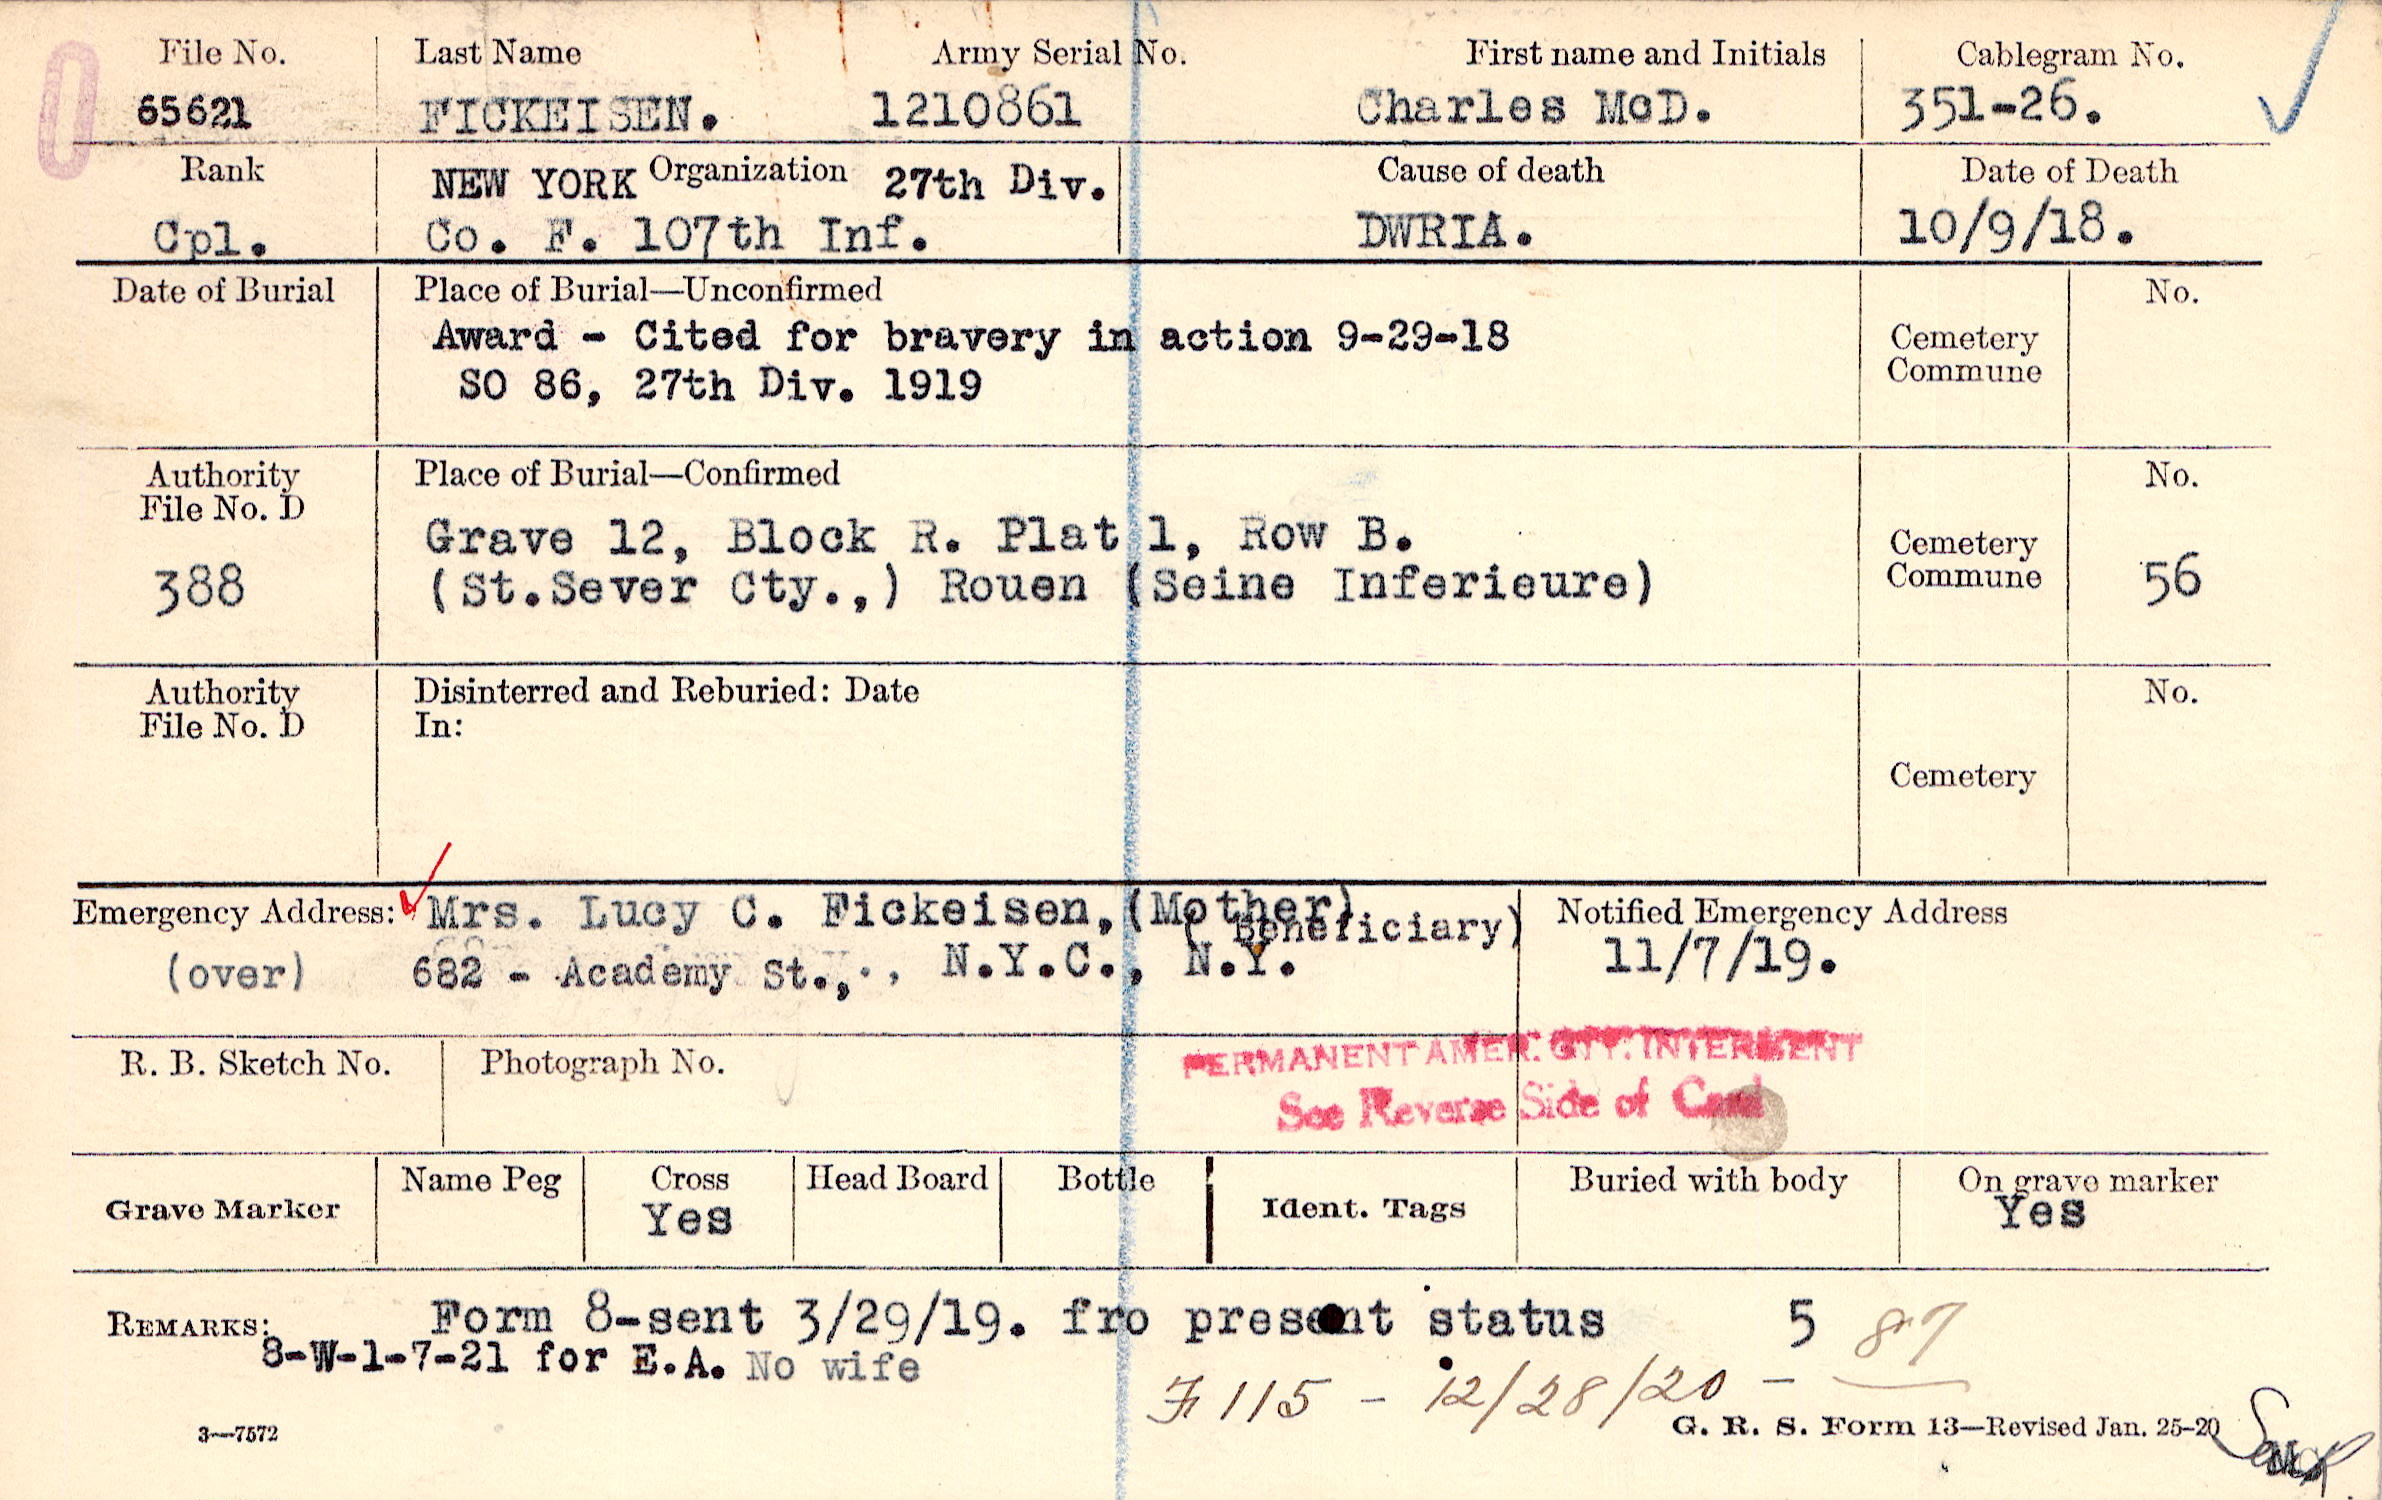 File No. Last Name Army Serial No. First name and Initials Cablegram No.
65621 FICKEISEN. 1210861 Charles McD. 351-26.
Rank NEW YORK Organization 27th Div. Cause of death Date of Death
Cpl. Co. F. 107th Inf. DWRIA. 10/9/18.
Date of Burial Place of Burial—Unconfirmed No.
Award - Cited for bravery in action 9-29-18 Cemetery
SO 86, 27th Div. 1919 Commune
Authority Place of Burial—Confirmed No.
File No. D
Grave 12, Block R. Plat 1, Row B. Cemetery
388 (St.Sever Cty.,) Rouen (Seine Inferieure) Commune 56
Authority Disinterred and Reburied: Date No.
File No. D In:
Cemetery
Emergency Address: Mrs. Lucy C. Fickeisen, (Mother) Notified Emergency Address
( Beneficiary)
(over) 682 - Academy St., N.Y.C., N.Y. 11/7/19.
R. B. Sketch No. Photograph No. PERMANENT AMER. CTY. INTERMENT
See Reverse Side of Card
Grave Marker Name Peg Cross Head Board Bottle Ident. Tags Buried with body On grave marker
Yes Yes
REMARKS: Form 8-sent 3/29/19. fro present status 5 87
8-W-1-7-21 for E.A. No wife
F 115 - 12/28/20 -
3—7572 G. R. S. Form 13—Revised Jan. 25-20